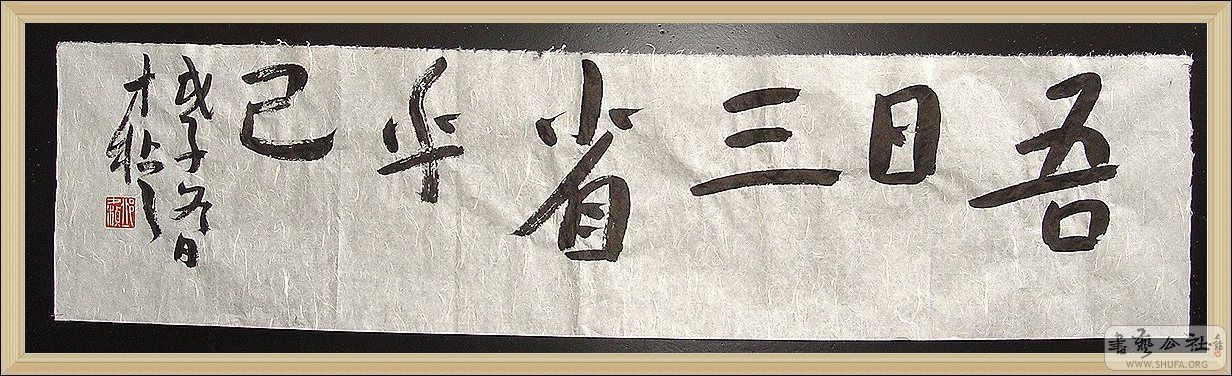 吾日三省乎己
戊子冬日
書藝公社
WWW.SHUFA.ORG